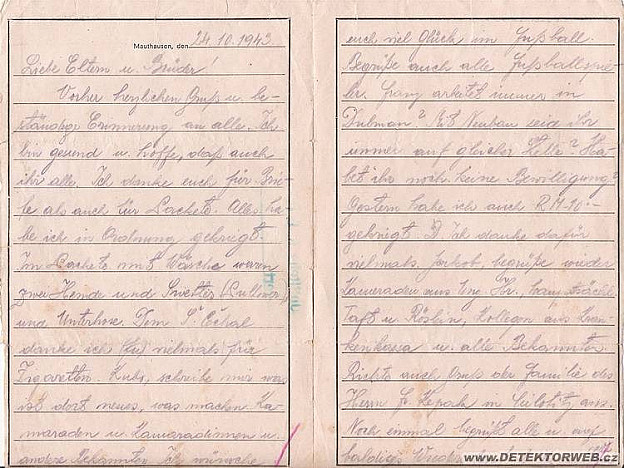 Mauthausen, den 24.10.1943
Liebe Eltern u. Brüder!
Vorher herzlichen Gruß u. be-
ständige Erinnerung an alle. Ich
bin gesund u. hoffe, daß auch
ihr alle. Ich danke euch für Brie-
fe als auch für Packete. Alles ha-
be ich in Ordnung gekriegt.
Im Packete mit Wäsche waren
zwei Hemde und Sweter (Pullower)
und Unterhose. Dem
danke ich vielmals für
Zigaretten. schreibe mir was
ist dort neues, was machen Ka-
maraden u. Kamaradinnen u.
andere Bekannten. Ich wünsche
euch viel Glück im Fußball.
Begrüße auch alle Fußballspie-
ler. Franz arbeitet immer in
Mit Neubau seid ihr
immer auf gleicher Stelle? Ha-
bet ihr noch keine Bewilligung?
Gestern habe ich auch RM-10.-
gekriegt. Ich danke dafür
vielmals. Jakob, begrüße wieder
Kameraden aus
u. Röslin, Kollegen aus Kran-
kenkassa u. alle Bekannten.
Richte auch Gruß der Familie des
Herrn in aus.
Noch einmal begrüßt alle u. auf
baldiges
www.DETEKTORWEB.cz